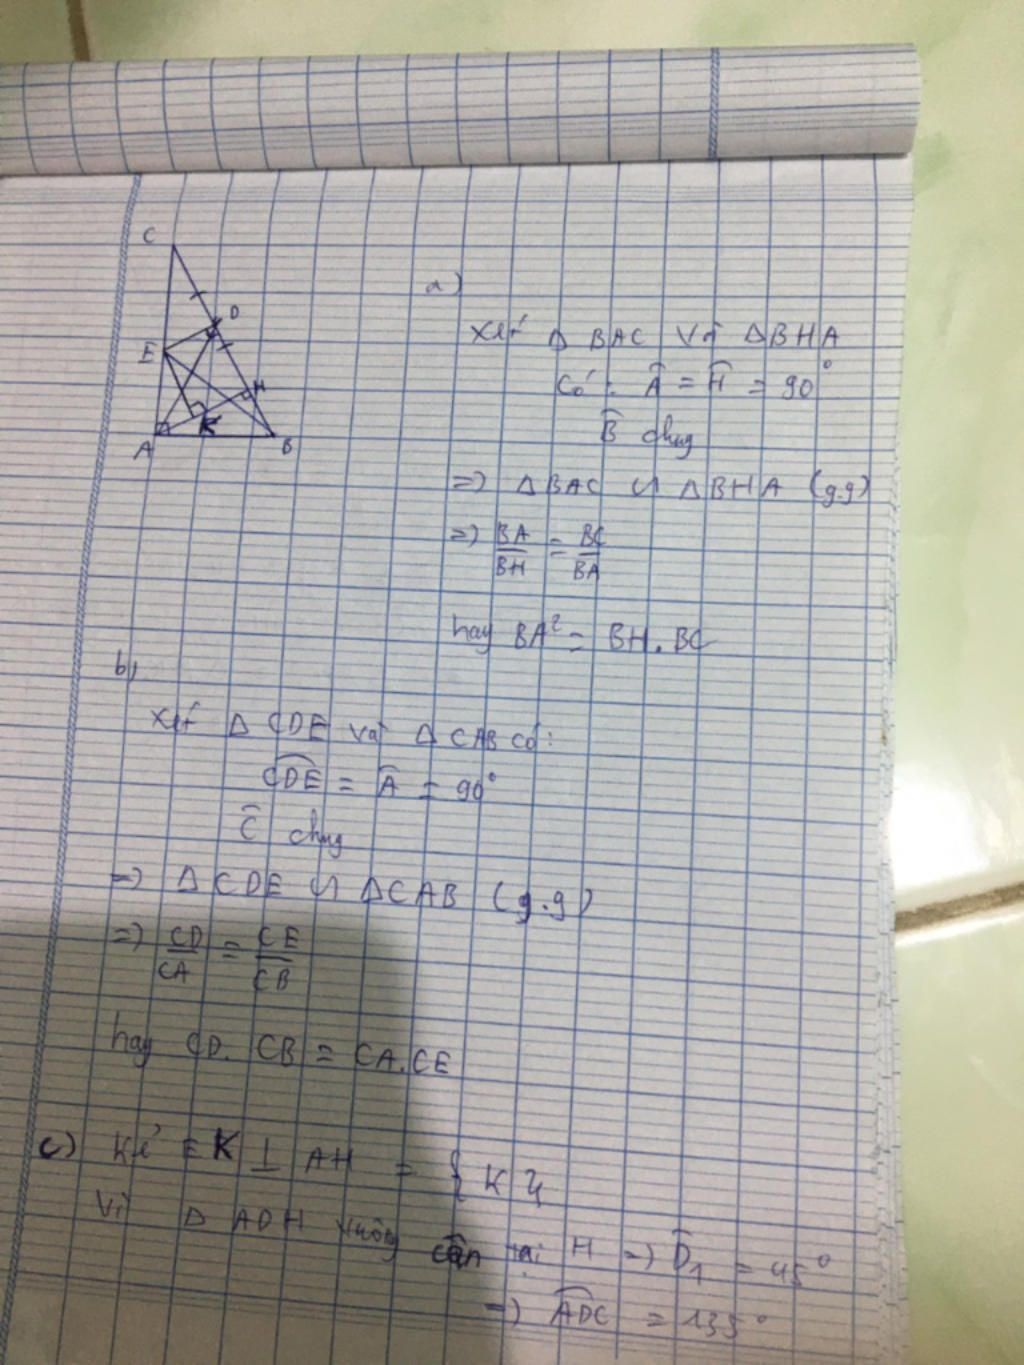 C
D
E
H
K
A
B
a)
Xét Δ BAC và ΔBHA
Có : Â = Ĥ = 90°
B̂ chung
=> ΔBAC ∽ ΔBHA (g.g)
=> BA/BH = BC/BA
hay BA² = BH.BC
b)
Xét Δ CDE và Δ CAB có:
CDE = Â = 90°
Ĉ chung
=> ΔCDE ∽ ΔCAB (g.g)
=> CD/CA = CE/CB
hay CD. CB = CA.CE
c) Kẻ EK ⊥ AH = {K}
Vì Δ ADH vuông cân tại H => D̂₁ = 45°
=> ADC = 135°